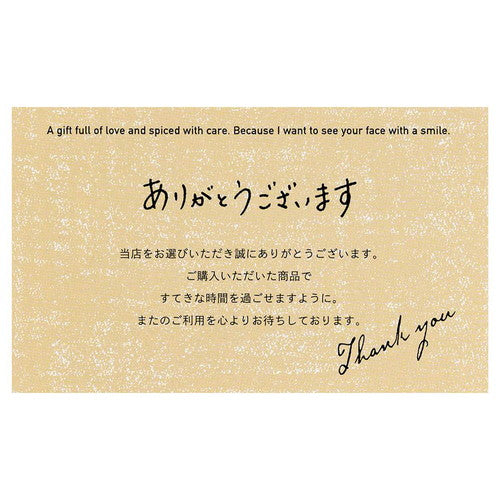 A gift full of love and spiced with care. Because I want to see your face with a smile.
ありがとうございます
当店をお選びいただき誠にありがとうございます。
ご購入いただいた商品で
すてきな時間を過ごせますように。
またのご利用を心よりお待ちしております。
Thank you